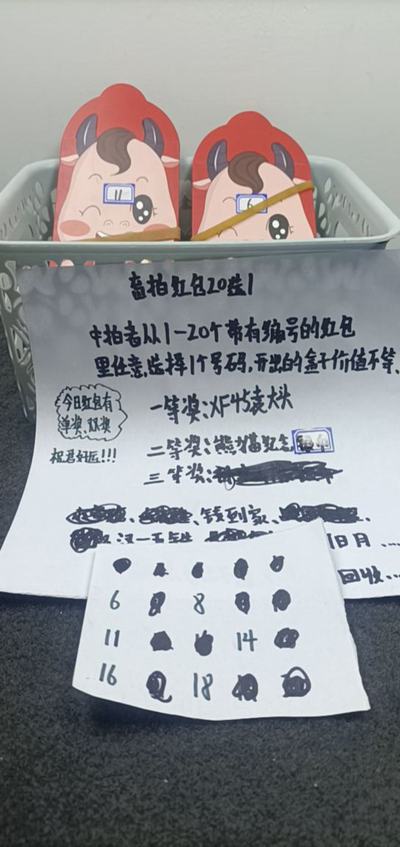 11
6
盲拍红包20选1
中拍者从1-20个带有编号的红包
里任意选择1个号码,开出的盒子价值不等、
今日红包有
单奖、双奖
祝君好运!!!
一等奖:XF45袁大头
二等奖:熊猫纪念
三等奖:
钱到家、
汉一五铢 旧月...
回收...
6 8
11 14
16 18